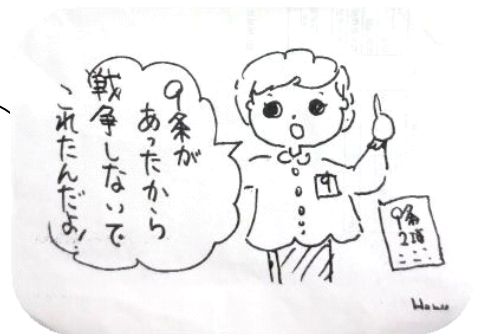 9条が
あったから
戦争しないで
これたんだよ!
9
9条
2項